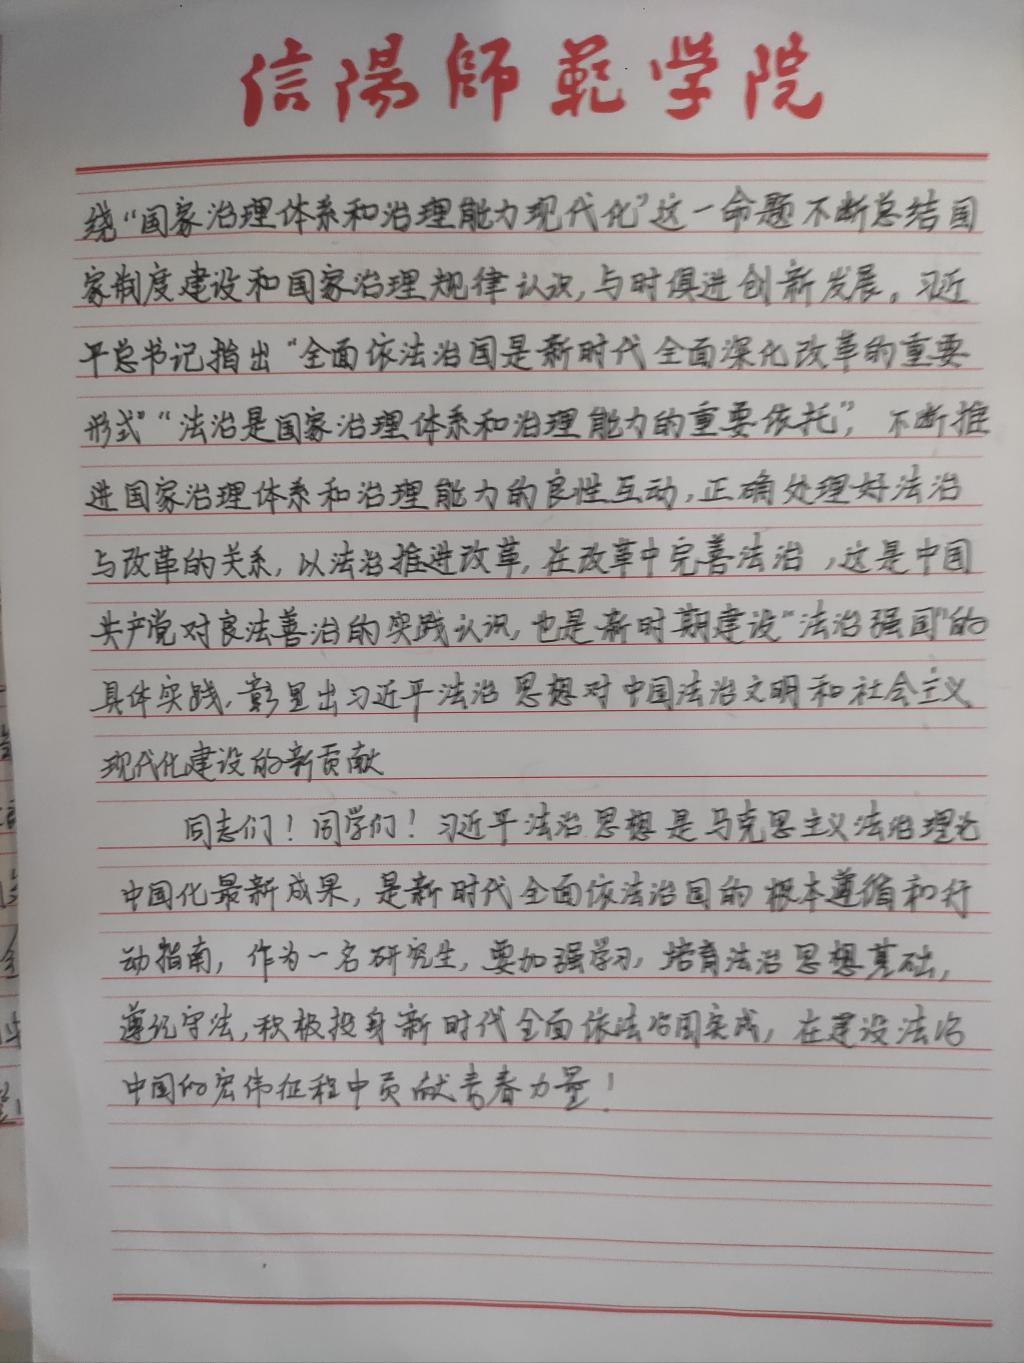 信陽師範学院
绕“国家治理体系和治理能力现代化”这一命题不断总结国
家制度建设和国家治理规律认识，与时俱进创新发展。习近
平总书记指出“全面依法治国是新时代全面深化改革的重要
形式”“法治是国家治理体系和治理能力的重要依托”，不断推
进国家治理体系和治理能力的良性互动，正确处理好法治
与改革的关系，以法治推进改革，在改革中完善法治，这是中国
共产党对良法善治的实践认识，也是新时期建设“法治强国”的
具体实践，彰显出习近平法治思想对中国法治文明和社会主义
现代化建设的新贡献
同志们！同学们！习近平法治思想是马克思主义法治理论
中国化最新成果，是新时代全面依法治国的根本遵循和行
动指南，作为一名研究生，要加强学习，培育法治思想基础，
遵纪守法，积极投身新时代全面依法治国实践，在建设法治
中国的宏伟征程中贡献青春力量！